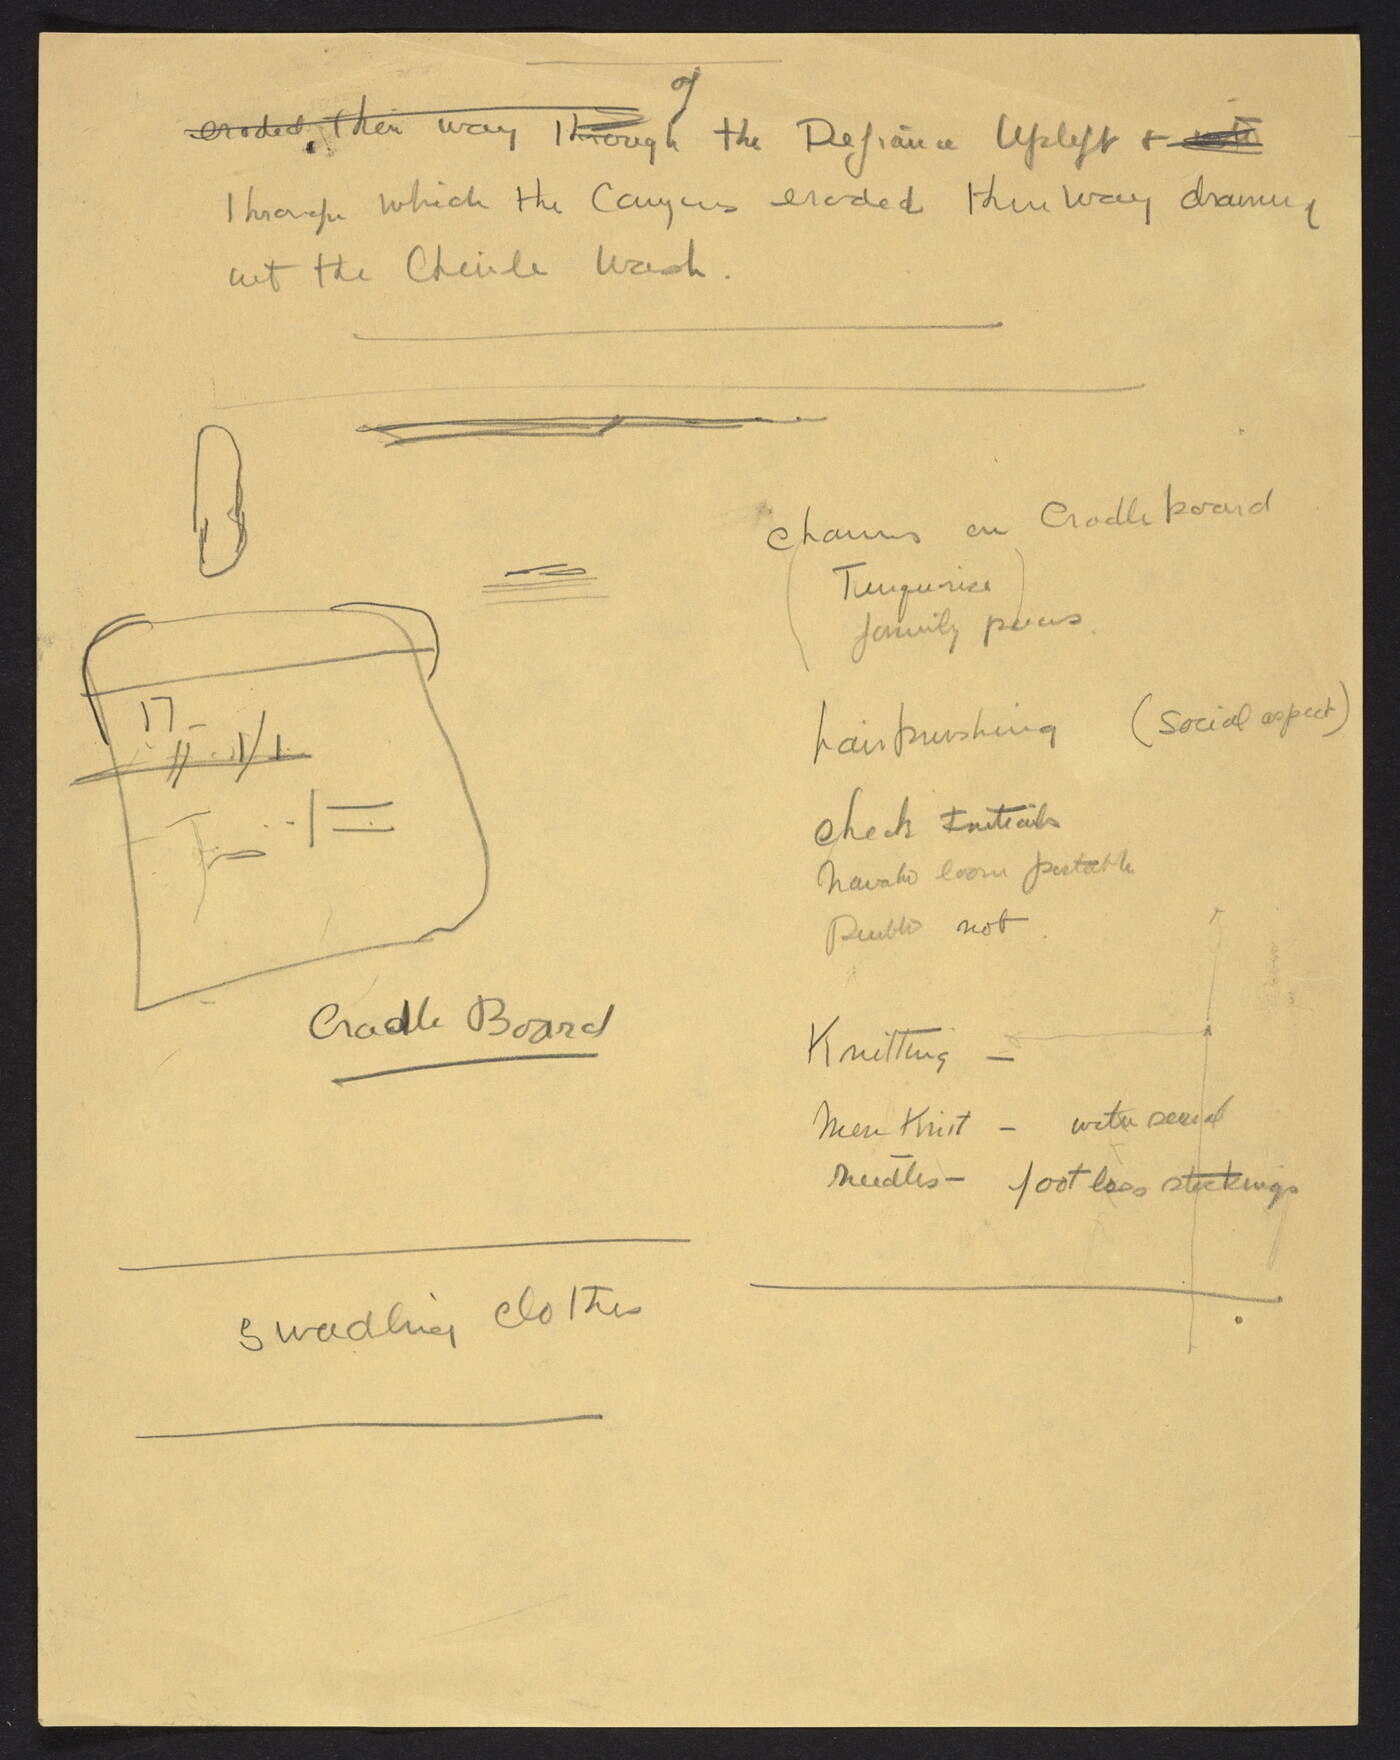 of
eroded their way through the Defiance Uplift &
through which the Canyons eroded their way draining
into the Chinle Wash.
Charms on Cradle board
Turquoise
family pieces.
hairbrushing (Social aspect)
check Initials
Navaho loom portable
Pueblo not.
Cradle Board
Knitting –
Men Knit – with
needles – footless stockings
swadling clothes